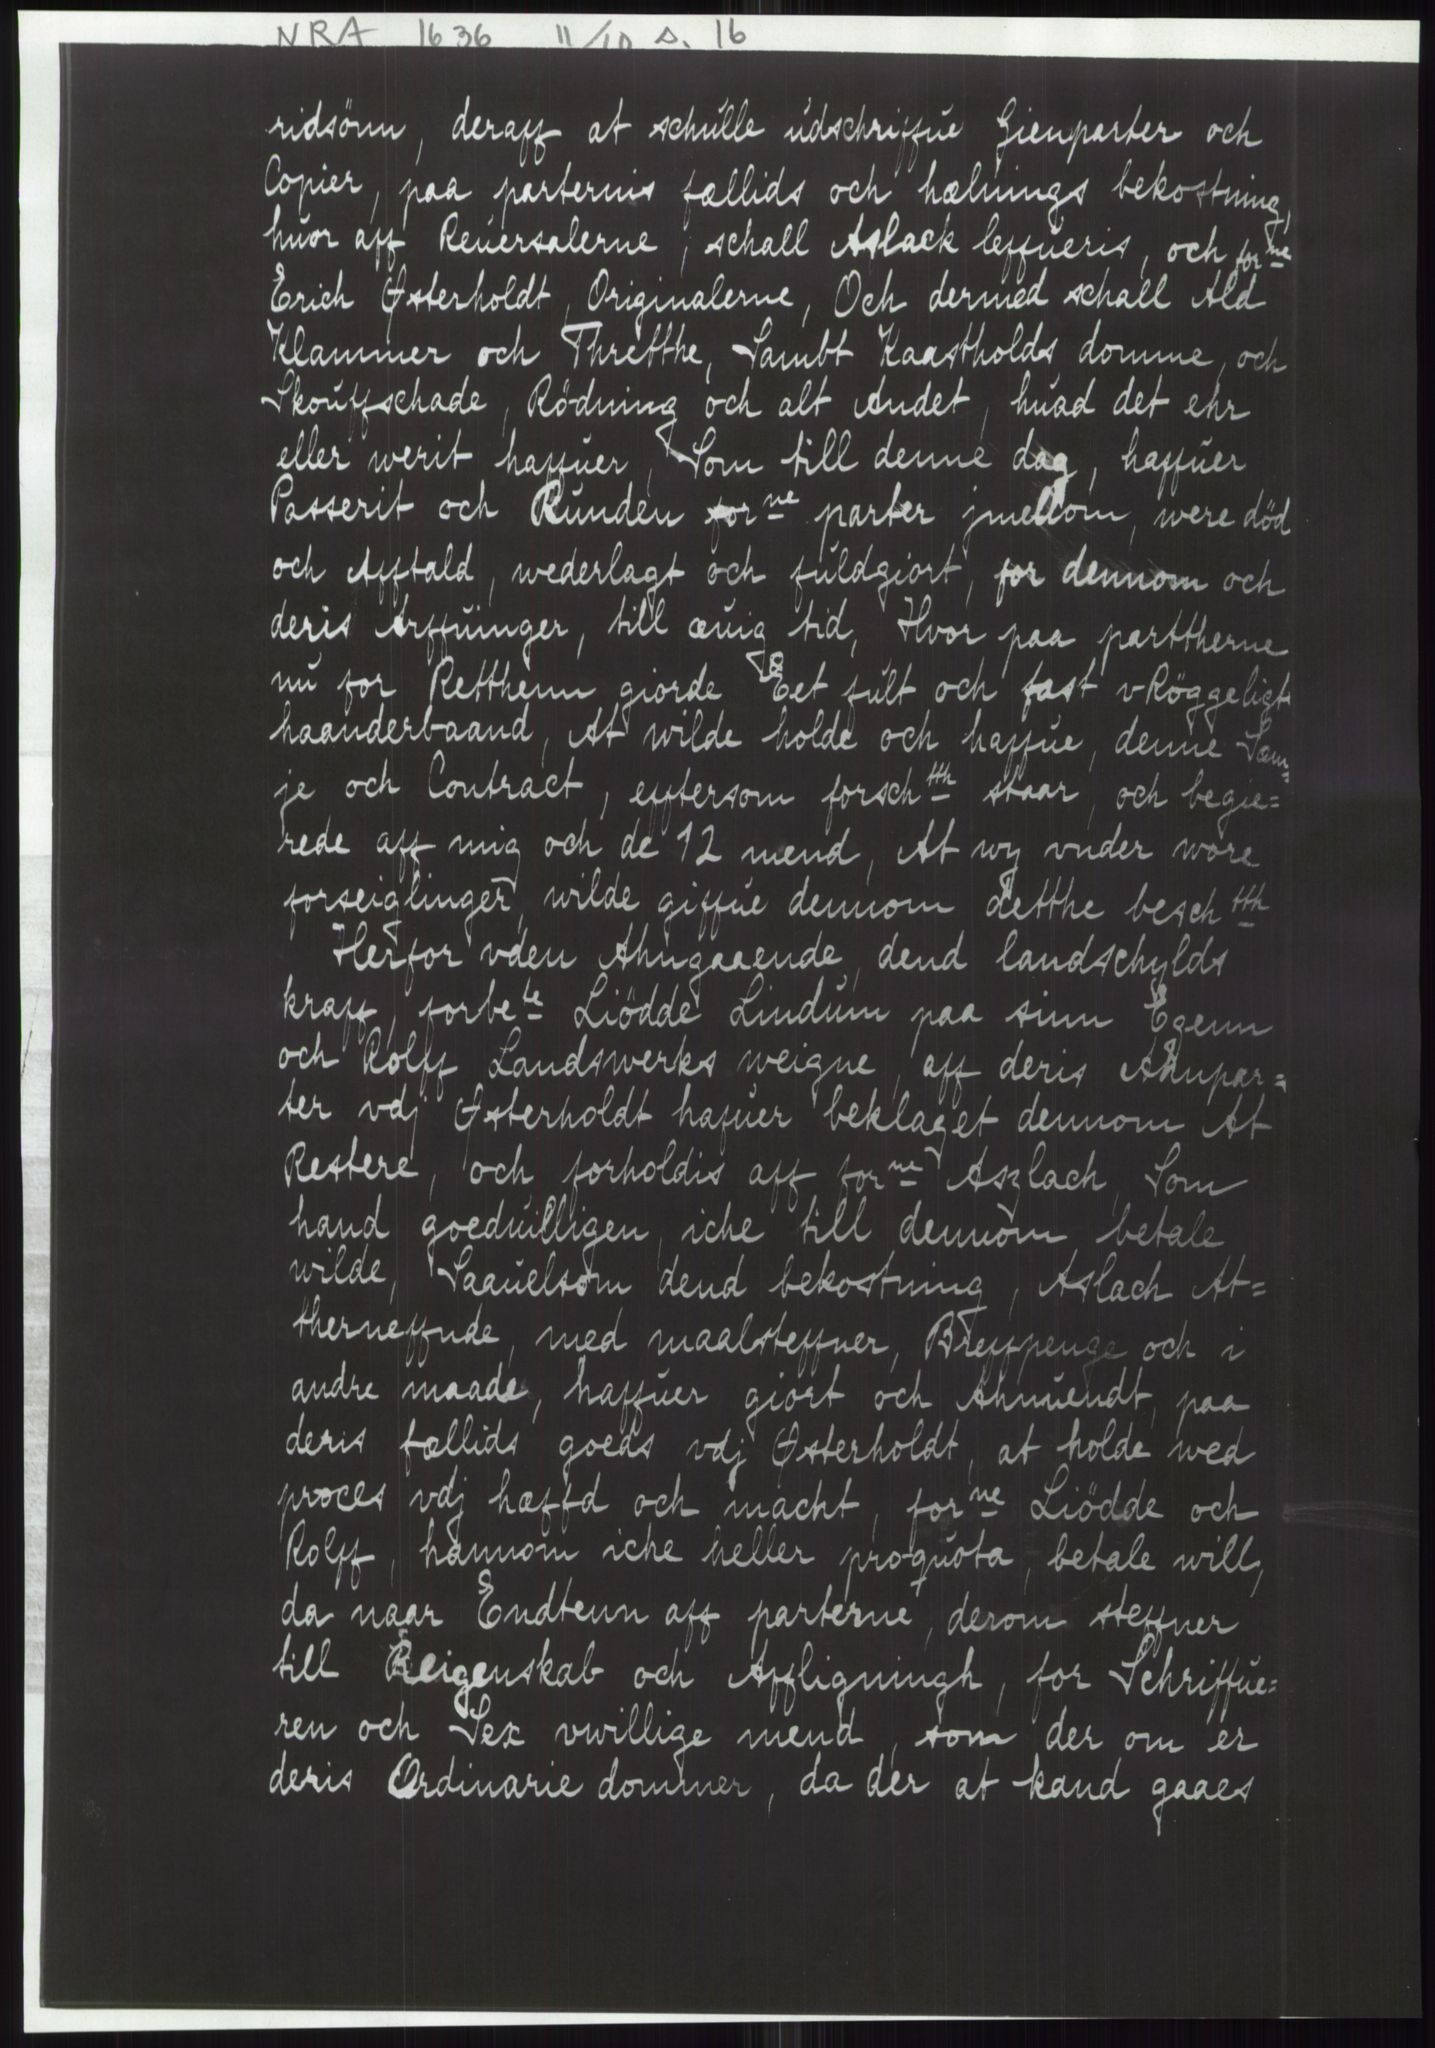 NRA 1636 11/10 s. 16
ridsønn, deraff at schulle udschriffue Gienparter och
Copier, paa parternis fællids och hælnings bekostning,
huor aff Reuersalerne, schall Aslack leffueris, och forne
Erich Østerholdt, Originalerne, Och dermed schall Ald
Klammer och Thretthe, Sambt Kaastholds domme, och
Skouffschade, Rödning och alt Andet, huad det ehr
eller werit haffuer, Som till denne dag, haffuer
Passerit och Runden forne parter jmellom, were död
och Afftald, wederlagt och fuldgiort, for dennom och
deris Arffuinger, till æuig tid, Hvor paa parttherne
nu for Retthenn giorde Eet fult och fast vRöggeligt
haanderbaand, At wilde holde och haffue, denne Sam=
je och Contract, efftersom forschtth staar, och begie=
rede aff mig och de 12 mend, At wy vnder wore
forseiglinger, wilde giffue dennom detthe beschtth
Herfor vden Ahngaaende, dend landschylds
kraff, forbete Liödde Lindum paa sinn Egenn
och Rolff Landswerks weigne, aff deris Ahnpar=
ter vdj Østerholdt hafuer beklaget dennom At
Restere, och forholdis aff forne Aszlach, Som
hand goeduilligen, iche till dennom betale
wilde, Saauelsom dend bekostning, Aslach At=
therneffnde, med maalsteffner, Breffpenge och i
andre maade, haffuer giort och Ahnuendt, paa
deris fællids goeds vdj Østerholdt, at holde wed
proces vdj hæffd och macht, forne Liödde och
Rolff, hannom iche heller pro quota, betale will,
da naar Endtenn aff parterne, derom steffner
till Reigenskab och Affligningh, for Schriffue=
ren och Sex vwillige mend, som der om er
deris Ordinarie dommer, da der at kand gaaes